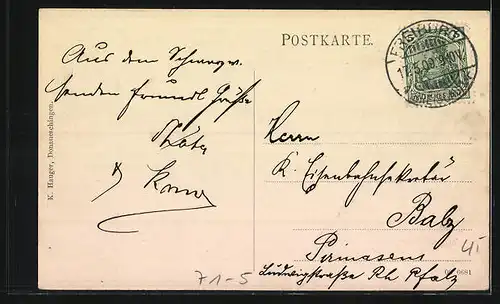 POSTKARTE.
Aus dem Schwarzw.
senden freundl Grüße
K. Hauger, Donaueschingen.
Herrn
K. Eisenbahnsekretär
Balz
Pirmasens
Ludwigstraße Rh. Pfalz
0681
71-5